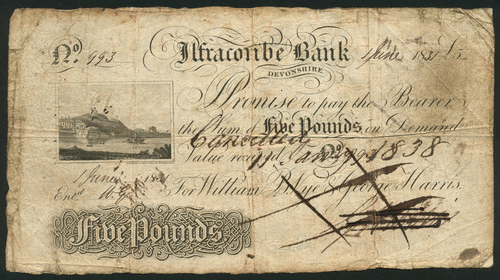 No. 993 Ilfracombe Bank 1 June 1831 £5
DEVONSHIRE.
I Promise to pay the Bearer
the Sum of Five Pounds on Demand
Cancelled
Value received No. 993
11 Jan 1838
1 June 1831 For William Pl Lye & George Harris.
Entd.
Five Pounds